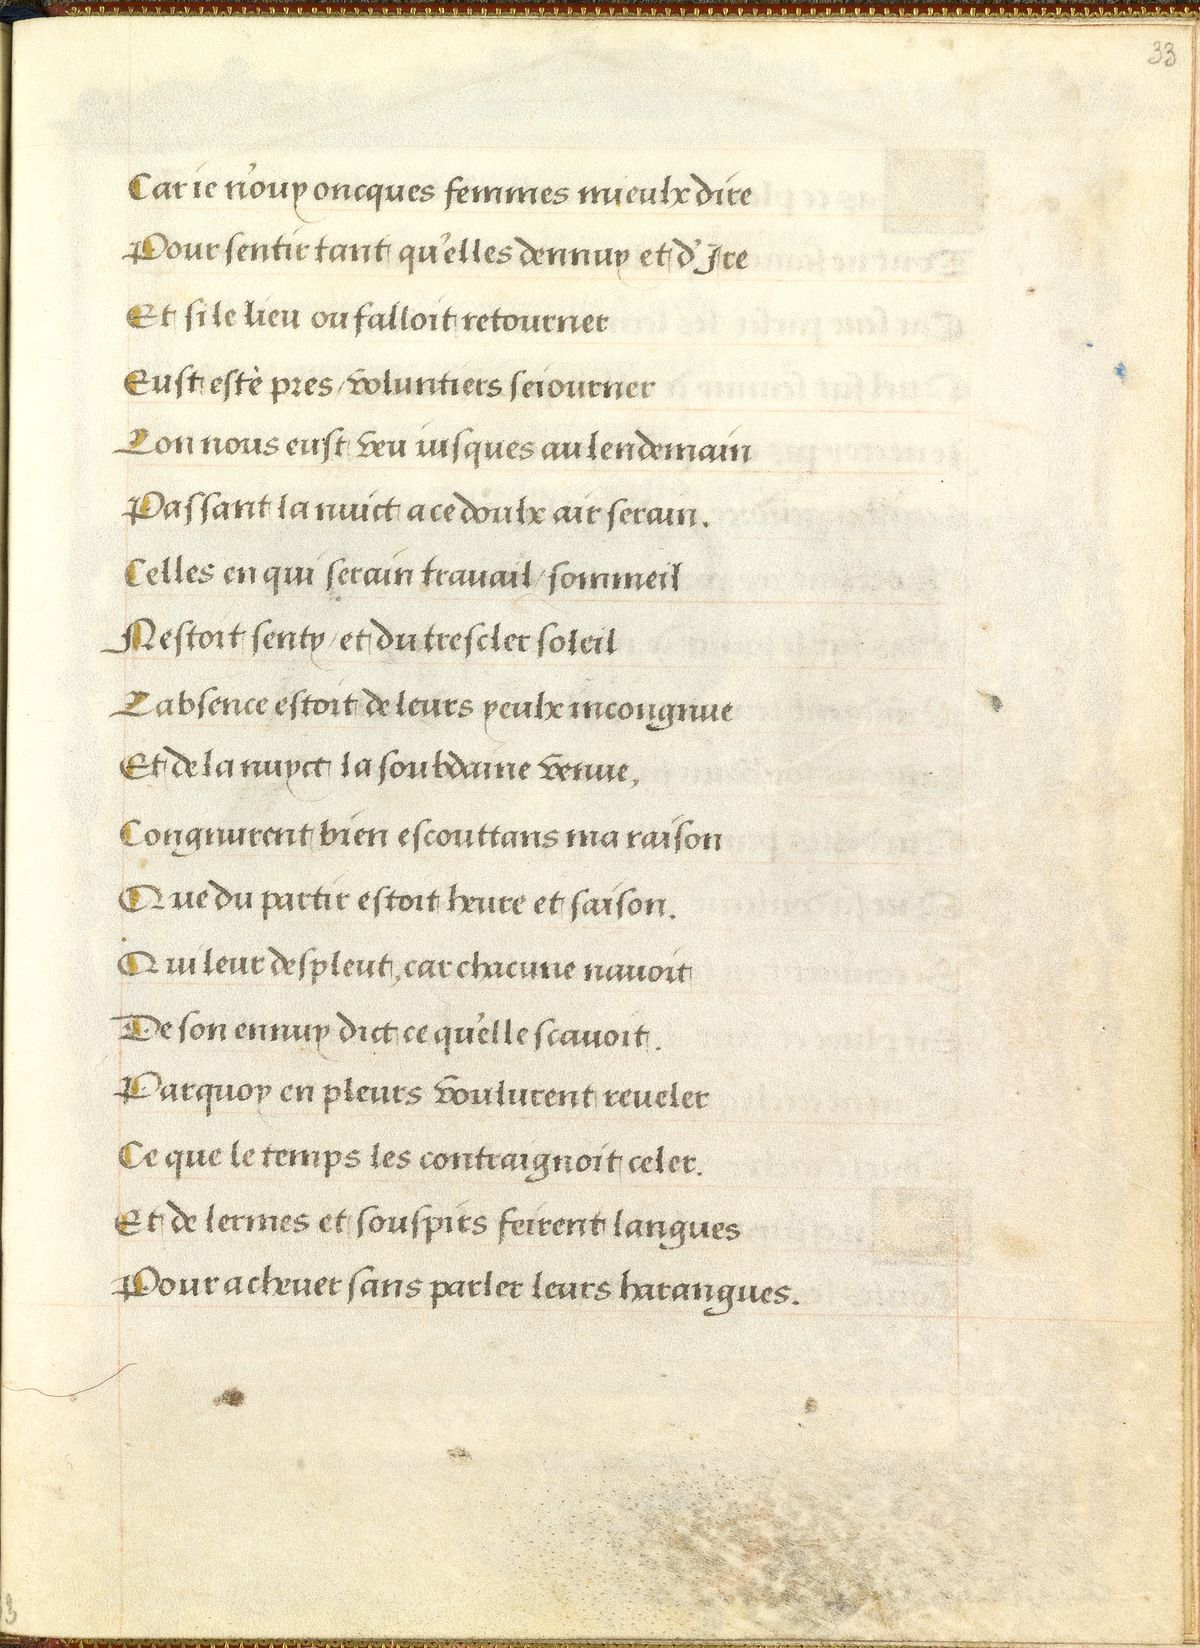 33
Car ie n'ouy oncques femmes mieulx dire
Pour sentir tant qu'elles dennuy et d'Ire
Et si le lieu ou falloit retourner
Eust estè pres / voluntiers seiourner
Lon nous eust veu iusques au lendemain
Passant la nuict a ce doulx air serain.
Celles en qui serain travail / sommeil
Nestoit senty / et du trescler soleil
Labsence estoit de leurs yeulx incongnue
Et de la nuyct la soubdaine venue,
Congnurent bien escouttans ma raison
Que du partir estoit heure et saison.
Qui leur despleut, car chacune nauoit
De son ennuy dict ce qu'elle scauoit.
Parquoy en pleurs voulurent reueler
Ce que le temps les contraignoit celer.
Et de lermes et souspirs feirent langues
Pour acheuer sans parler leurs harangues.